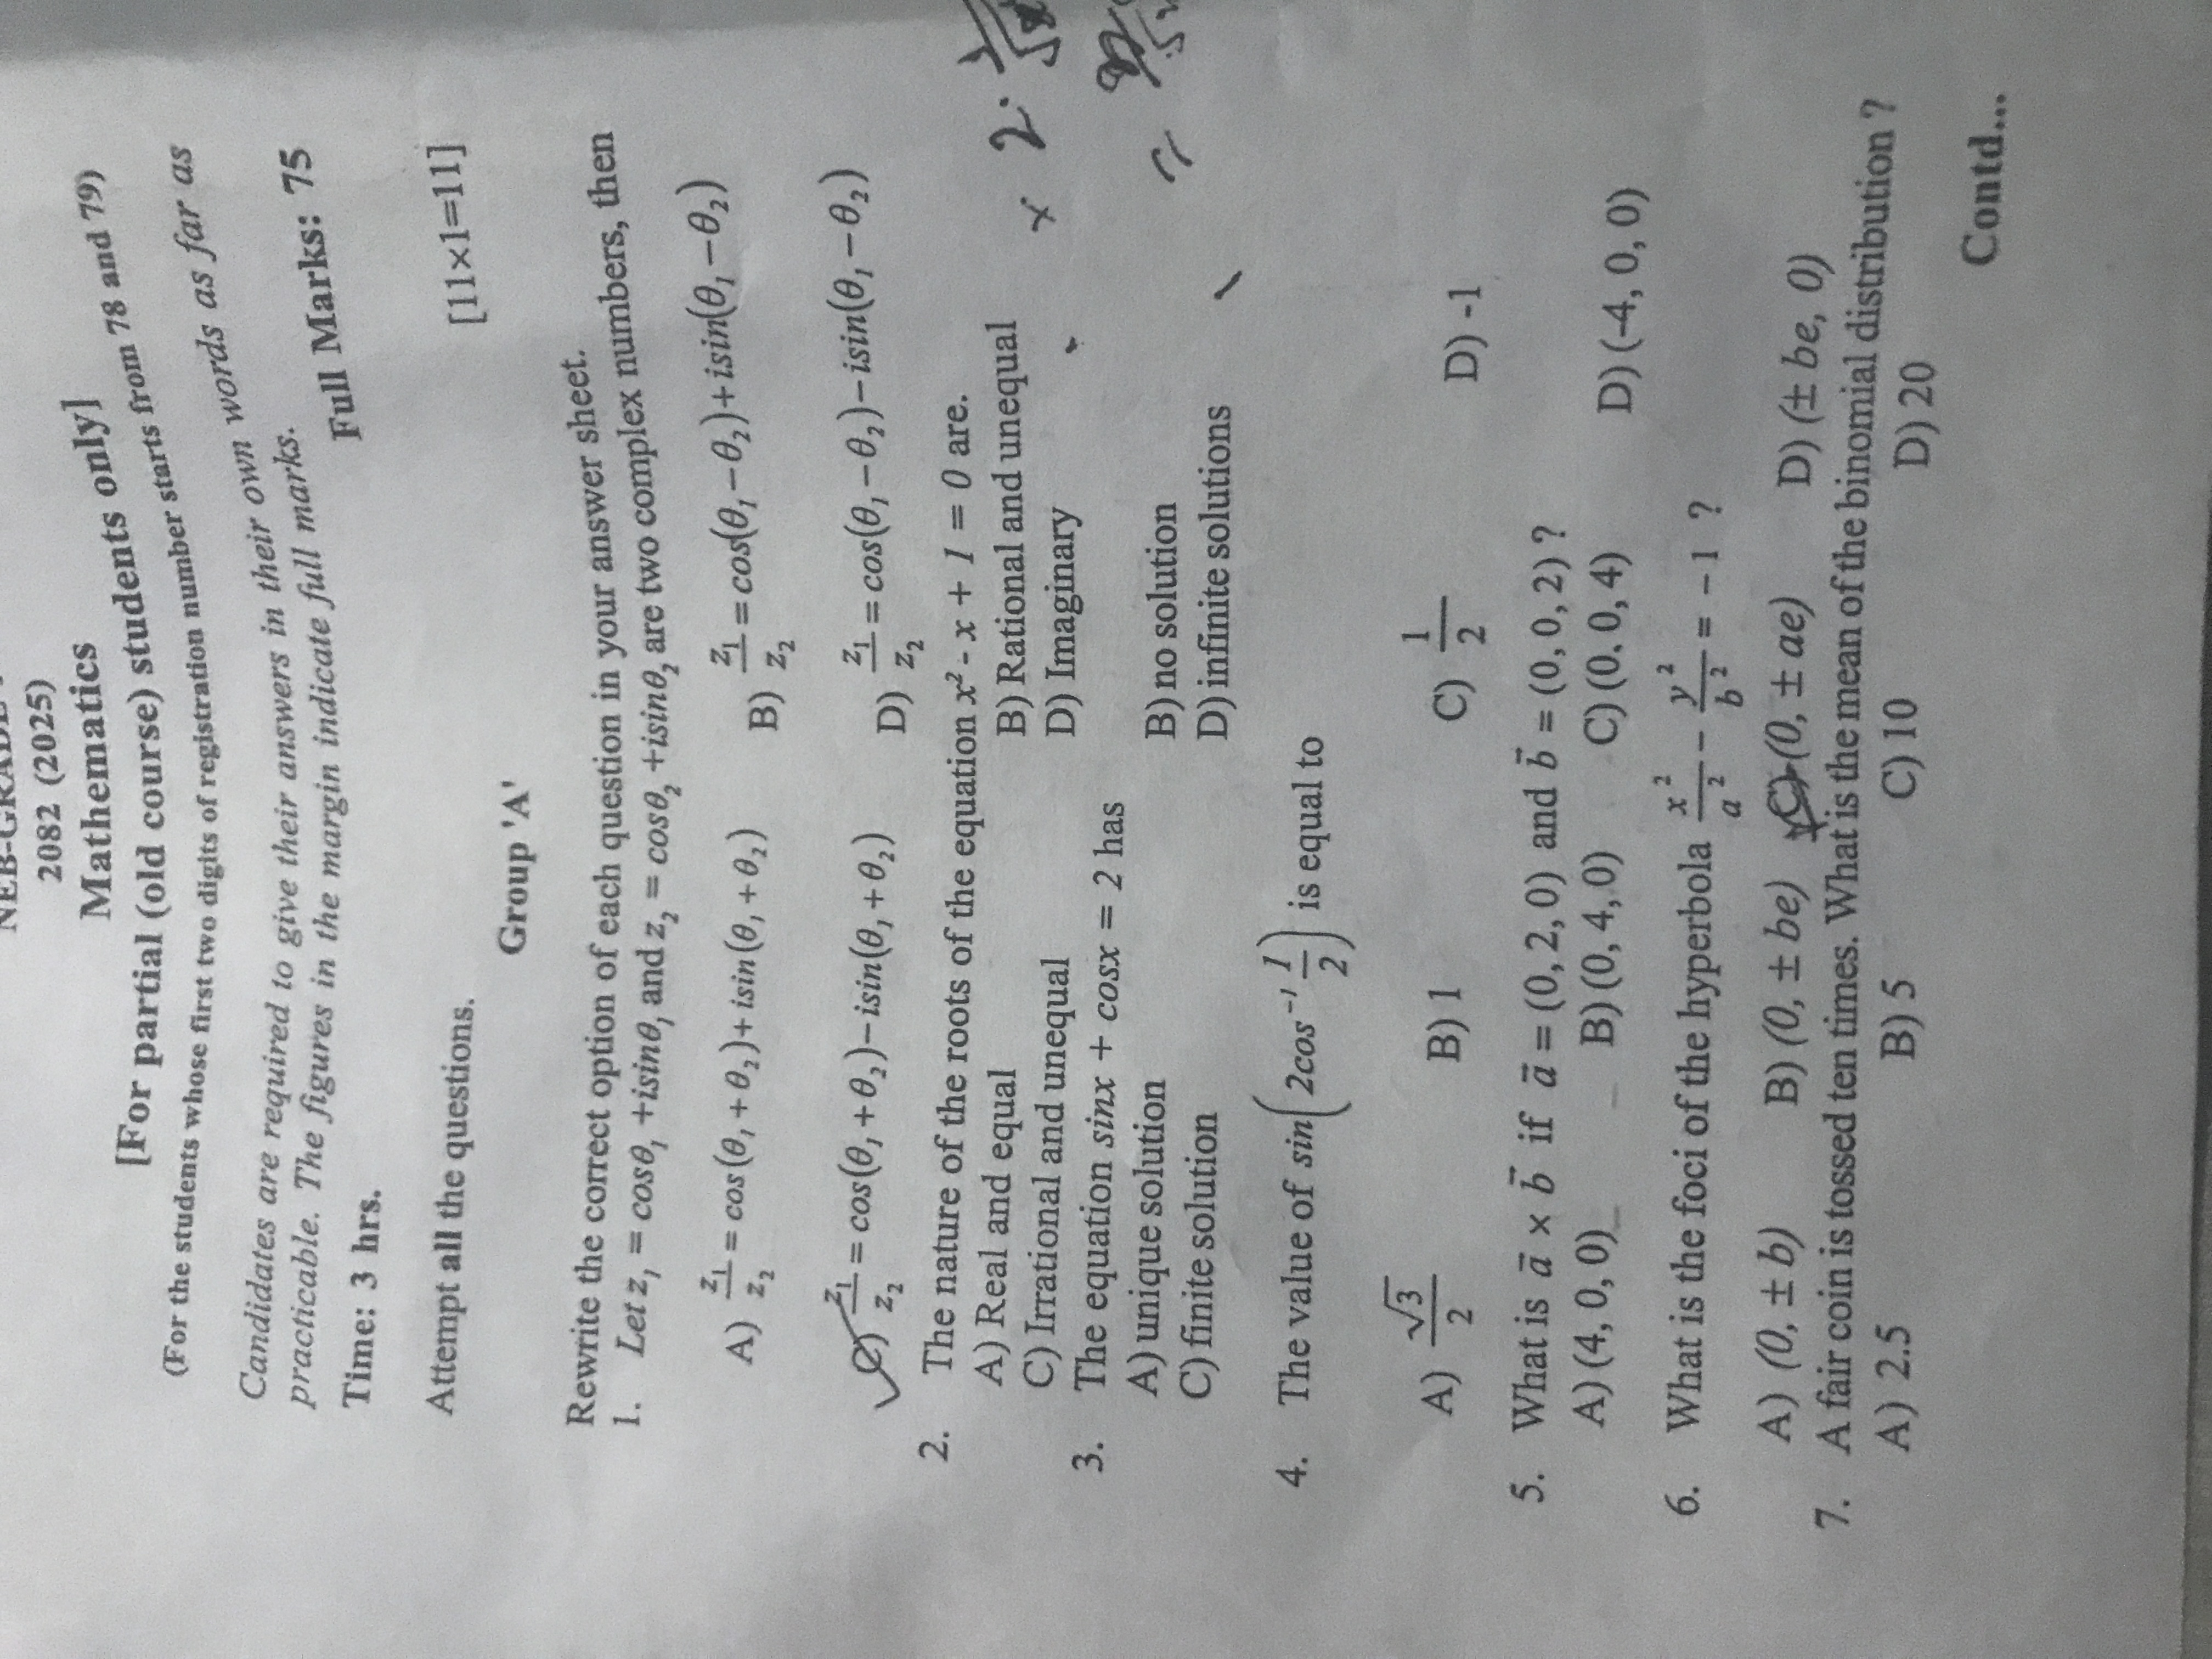 2082 (2025)
Mathematics
[For partial (old course) students only]
(For the students whose first two digits of registration number starts from 78 and 79)
Candidates are required to give their answers in their own words as far as
practicable. The figures in the margin indicate full marks.
Time: 3 hrs. Full Marks: 75
Attempt all the questions.
Group 'A' [11×1=11]
Rewrite the correct option of each question in your answer sheet.
1. Let z₁ = cosθ₁ +isinθ₁ and z₂ = cosθ₂ +isinθ₂ are two complex numbers, then
A) z₁/z₂ = cos(θ₁ + θ₂)+ isin(θ₁ + θ₂) B) z₁/z₂ = cos(θ₁ − θ₂)+isin(θ₁ − θ₂)
C) z₁/z₂ = cos(θ₁ + θ₂)−isin(θ₁ + θ₂) D) z₁/z₂ = cos(θ₁ − θ₂)−isin(θ₁ − θ₂)
2. The nature of the roots of the equation x² - x + 1 = 0 are.
A) Real and equal B) Rational and unequal
C) Irrational and unequal D) Imaginary
3. The equation sinx + cosx = 2 has
A) unique solution B) no solution
C) finite solution D) infinite solutions
4. The value of sin(2cos⁻¹ 1/2) is equal to
A) √3/2 B) 1 C) 1/2 D) -1
5. What is a⃗ × b⃗ if a⃗ = (0, 2, 0) and b⃗ = (0, 0, 2) ?
A) (4, 0, 0) B) (0, 4, 0) C) (0, 0, 4) D) (-4, 0, 0)
6. What is the foci of the hyperbola x²/a² − y²/b² = −1 ?
A) (0, ± b) B) (0, ± be) C) (0, ± ae) D) (± be, 0)
7. A fair coin is tossed ten times. What is the mean of the binomial distribution ?
A) 2.5 B) 5 C) 10 D) 20
Contd...